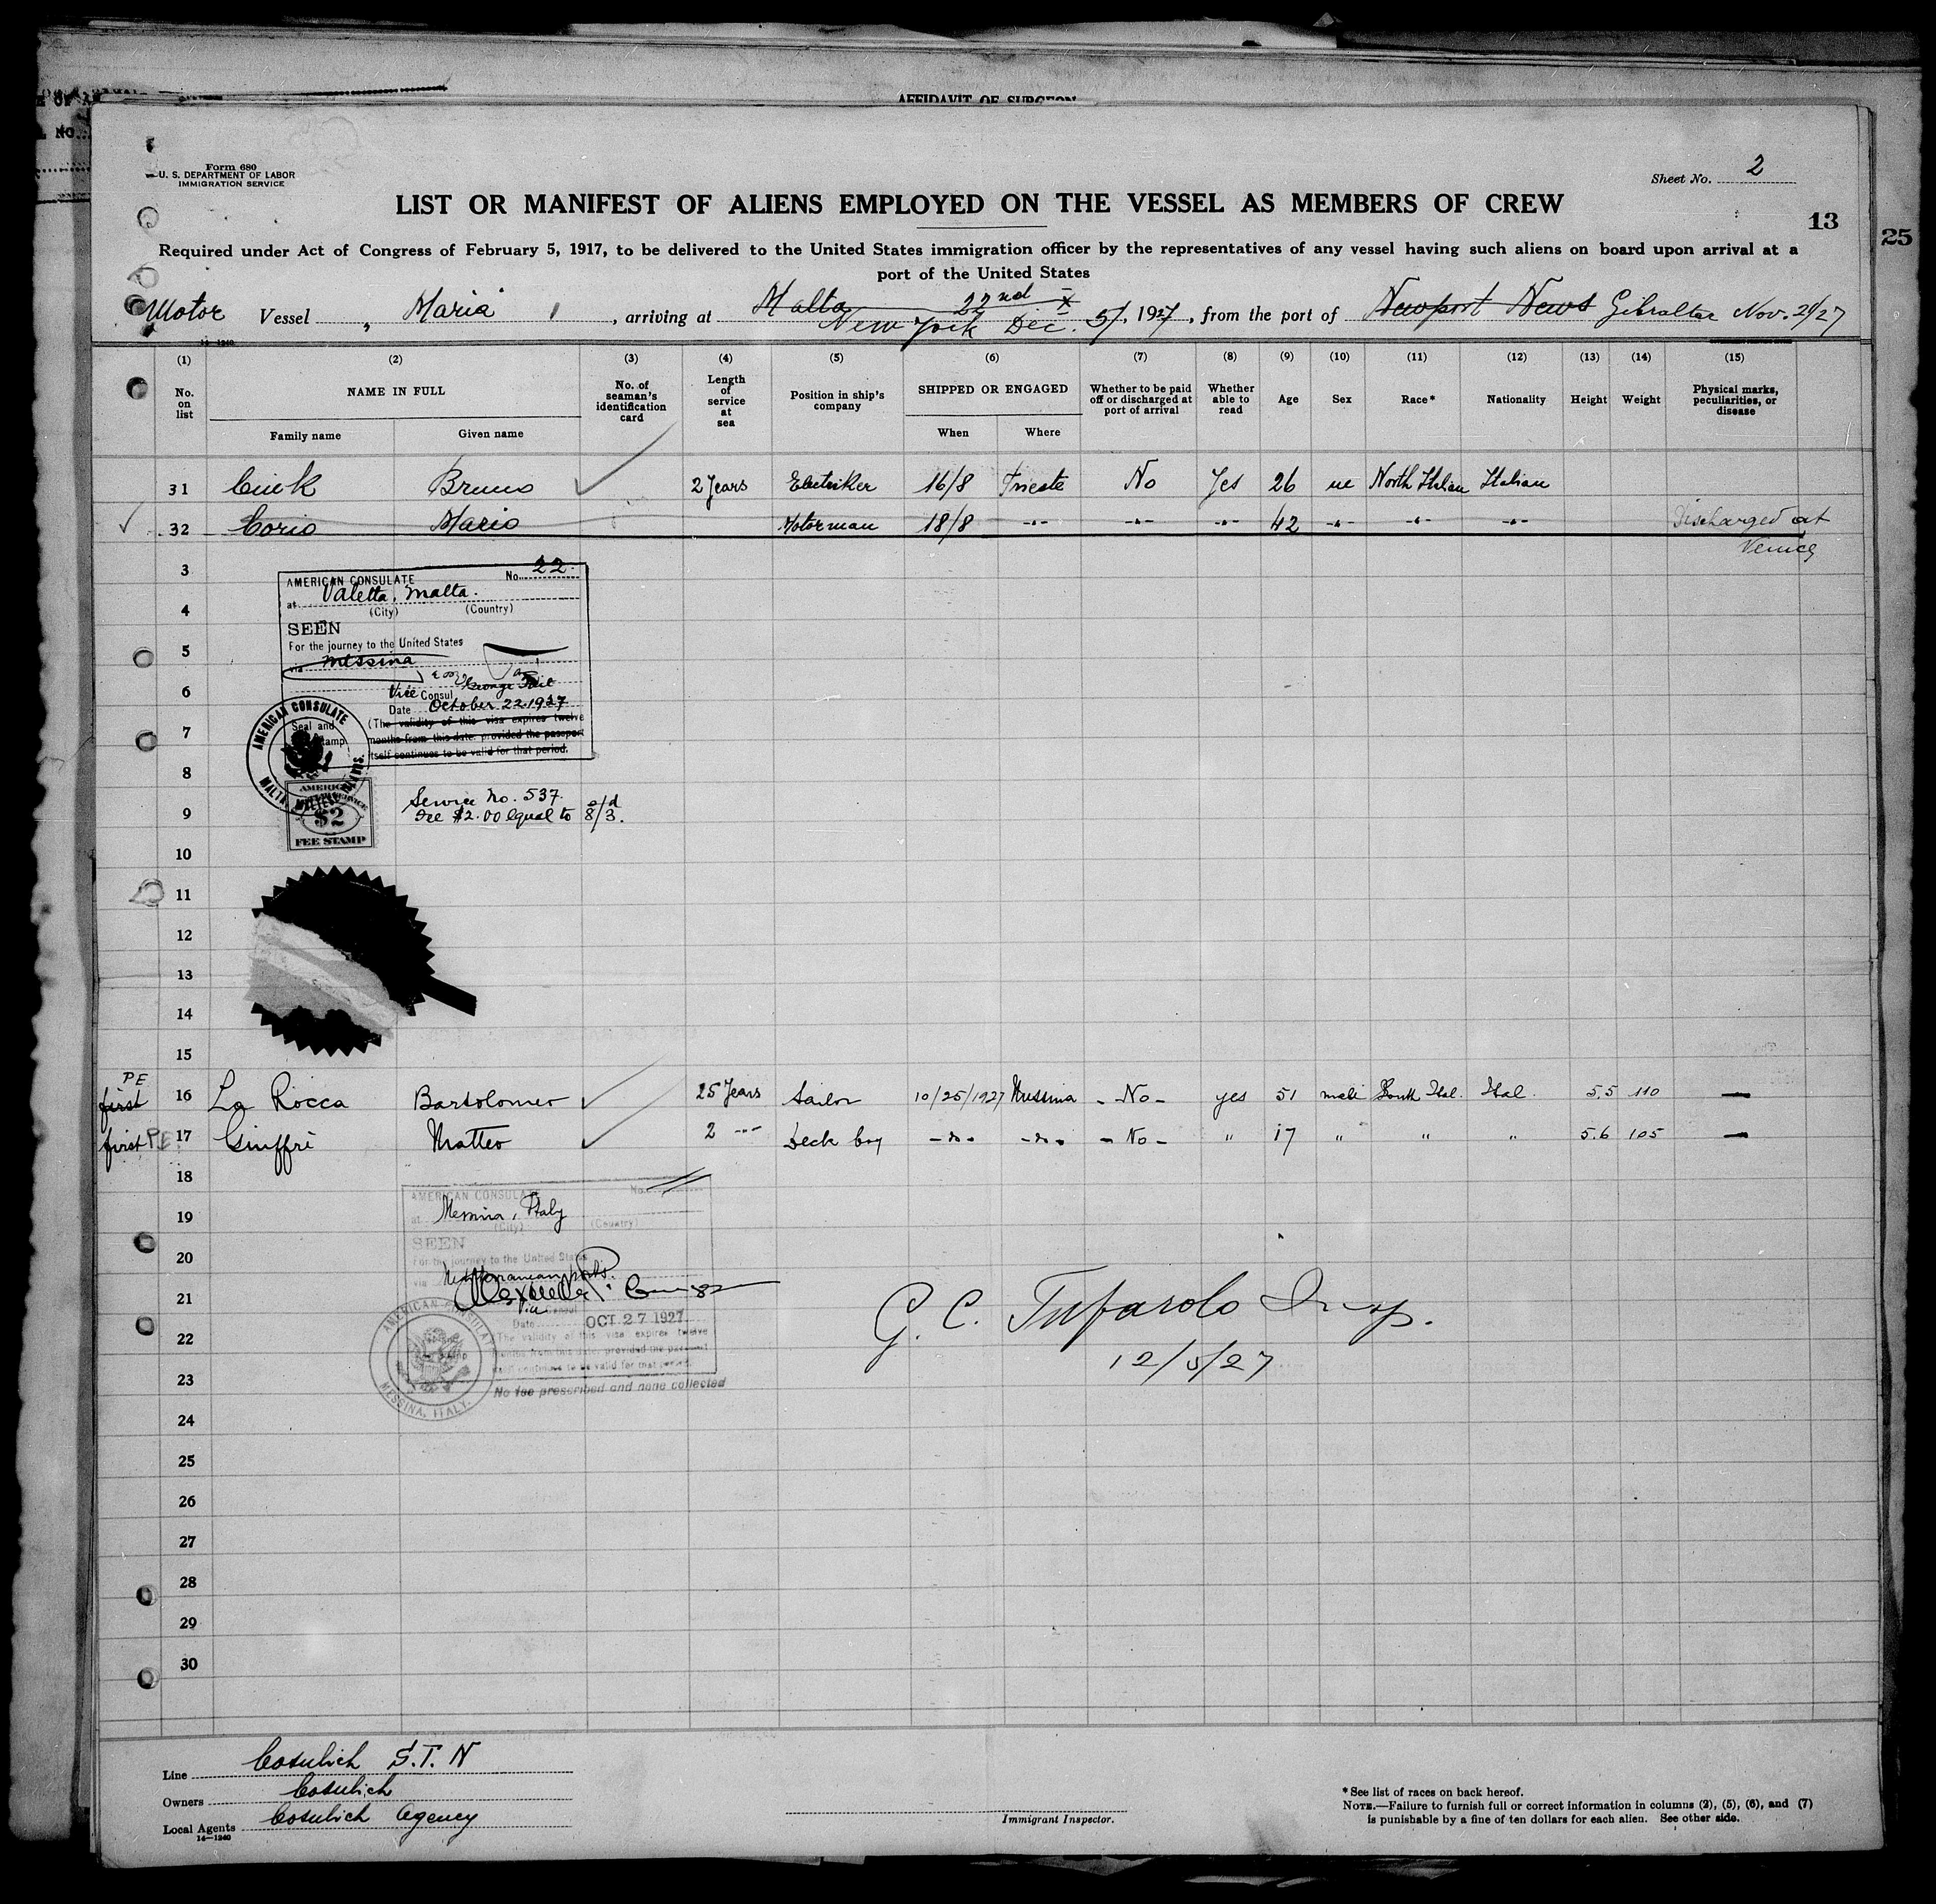 AFFIDAVIT OF SURGEON
Form 680
U. S. DEPARTMENT OF LABOR
IMMIGRATION SERVICE
Sheet No. 2
LIST OR MANIFEST OF ALIENS EMPLOYED ON THE VESSEL AS MEMBERS OF CREW
13
25
Required under Act of Congress of February 5, 1917, to be delivered to the United States immigration officer by the representatives of any vessel having such aliens on board upon arrival at a
port of the United States
Motor Vessel „ Maria“, arriving at Malta 22nd X New York Dec. 5/, 1927, from the port of Newport News Gibraltar Nov. 21/27
(1) (2) (3) (4) (5) (6) (7) (8) (9) (10) (11) (12) (13) (14) (15)
No. on list NAME IN FULL No. of seaman's identification card Length of service at sea Position in ship's company SHIPPED OR ENGAGED Whether to be paid off or discharged at port of arrival Whether able to read Age Sex Race* Nationality Height Weight Physical marks, peculiarities, or disease
Family name Given name When Where
31 Cuik Bruno 2 Years Electriker 16/8 Trieste No Yes 26 m North Italian Italian
32 Corio Mario Motorman 18/8 -"- -"- -"- 42 -"- -"- -"- Discharged at
Venice
3
AMERICAN CONSULATE No. 22
at Valetta, Malta.
(City) (Country)
4
SEEN
5
For the journey to the United States
via Messina
6
Vice Consul
Date October 22, 1927
7
(The validity of this visa expires twelve
months from this date, provided the passport
itself continues to be valid for that period.
Seal and
Stamp
AMERICAN CONSULATE
MALTA
8
$2
FEE STAMP
9
Service No. 537.
Fee $2.00 equal to 8/3.
10
11
12
13
14
15
PE
first 16 La Rocca Bartolomeo 25 Years Sailor 10/25/1927 Messina - No - yes 51 male South Ital. Ital. 5.5 110 —
first PE 17 Giuffrè Matteo 2 -"- Deck boy -"- -"- - No - " 17 " " " 5.6 105 —
18
AMERICAN CONSULATE No.
19
at Messina, Italy
(City) (Country)
SEEN
20
For the journey to the United States
via Mediterranean ports.
21
Vice Consul
Date OCT 27 1927
22
The validity of this visa expires twelve
months from this date, provided the passport
itself continues to be valid for that period.
AMERICAN CONSULATE
MESSINA, ITALY.
No fee prescribed and none collected
G. C. Tufarolo Insp.
12/5/27
23
24
25
26
27
28
29
30
Line Cosulich S.T.N
Owners Cosulich
Local Agents Cosulich Agency
14—1240
Immigrant Inspector.
*See list of races on back hereof.
NOTE.—Failure to furnish full or correct information in columns (2), (5), (6), and (7)
is punishable by a fine of ten dollars for each alien. See other side.